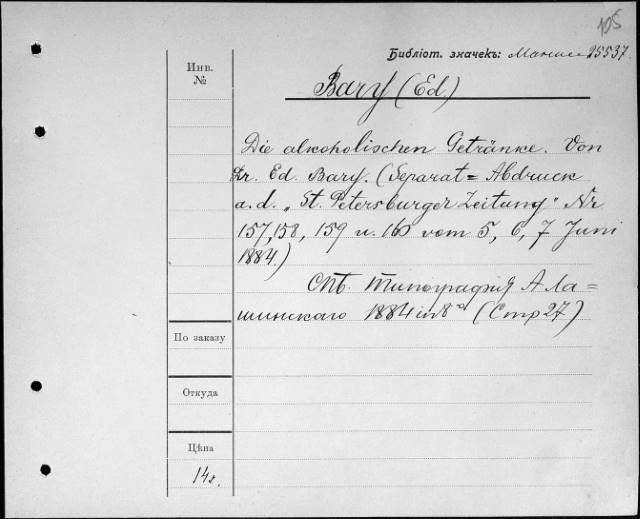 105
Библіот. значекъ: 25537
Инв.
№
Bary (Ed.)
Die alkoholischen Getränke. Von
Dr. Ed. Bary. (Separat= Abdruck
a. d. „St. Petersburger Zeitung" Nr
157, 158, 159 u. 160 vom 5, 6, 7 Juni
1884.)
Спб. типографія А Ла=
шинскаго 1884 in 8° (Стр 27)
По заказу
Откуда
Цѣна
14г.